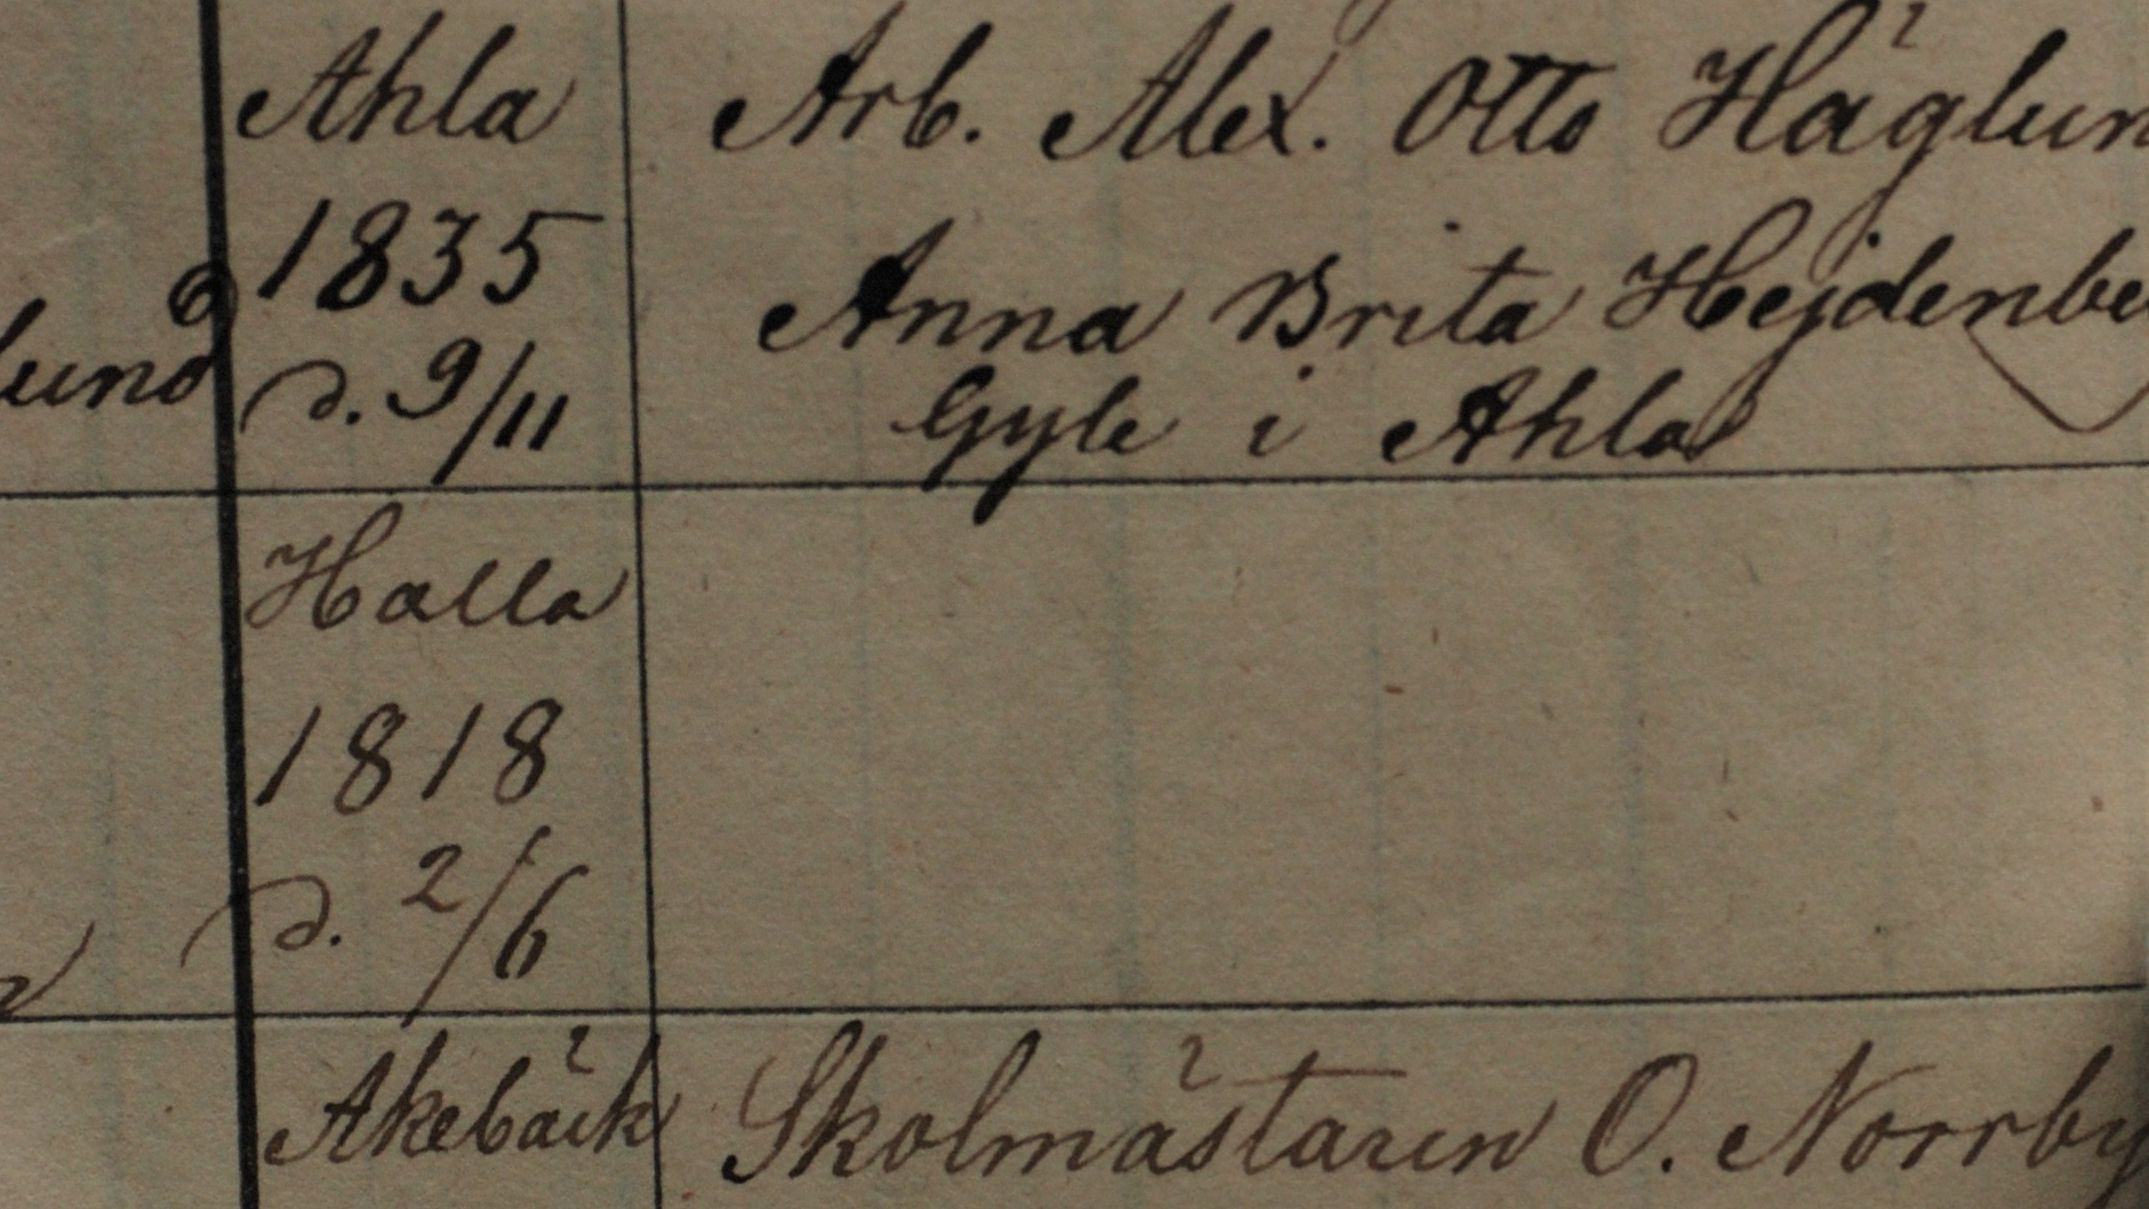 Ahla
1835
d. 9/11
lund
Arb. Alex. Otto Häglun
Anna Brita Hejdenbe
Gyle i Ahla
Halla
1818
d. 2/6
Akebäck
Skolmästaren O. Norrby